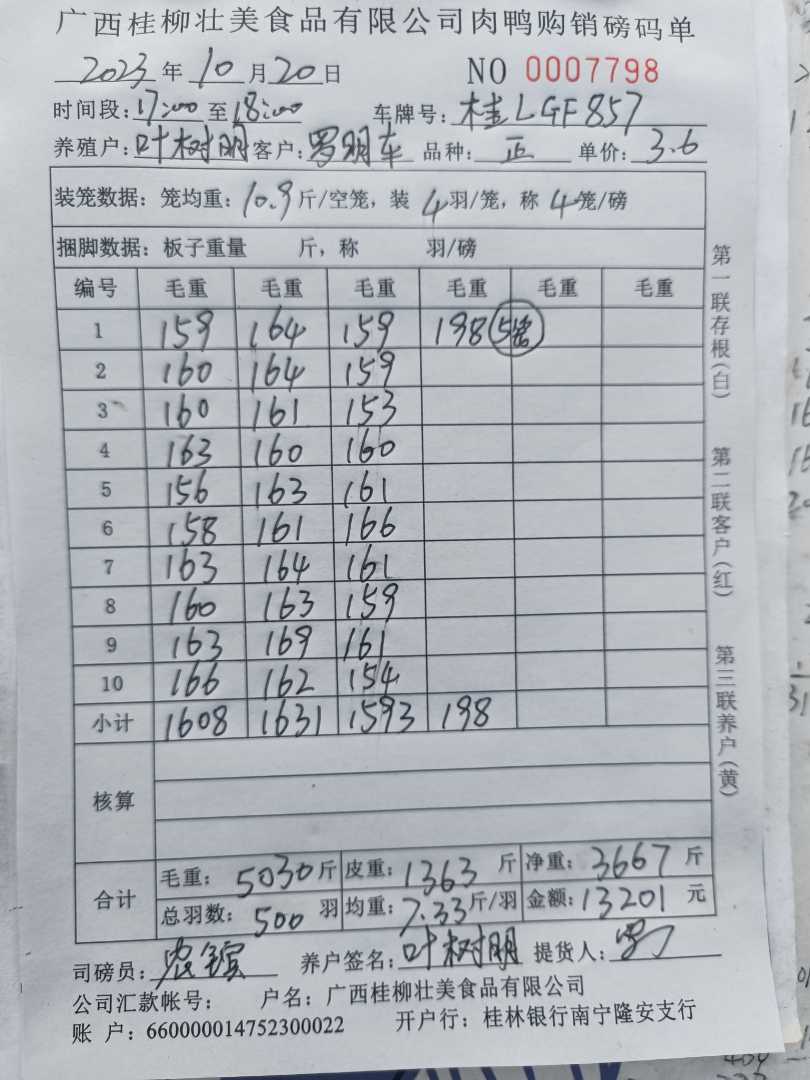 广西桂柳壮美食品有限公司肉鸭购销磅码单
2023年10月20日 NO 0007798
时间段:17:00至18:00 车牌号:桂LGF857
养殖户:叶树明 客户:罗明车 品种:正 单价:3.6
装笼数据:笼均重:10.9斤/空笼,装4羽/笼,称4笼/磅
捆脚数据:板子重量 斤,称 羽/磅
编号 毛重 毛重 毛重 毛重 毛重 毛重
1 159 164 159 198 5笼
2 160 164 159
3 160 161 153
4 163 160 160
5 156 163 161
6 158 161 166
7 163 164 161
8 160 163 159
9 163 169 161
10 166 162 154
小计 1608 1631 1593 198
核算
合计 毛重:5030斤 皮重:1363斤 净重:3667斤
总羽数:500羽 均重:7.33斤/羽 金额:13201元
司磅员: 养户签名:叶树明 提货人:罗
公司汇款帐号: 户名:广西桂柳壮美食品有限公司
账 户:660000014752300022 开户行:桂林银行南宁隆安支行
第一联存根(白) 第二联客户(红) 第三联养户(黄)